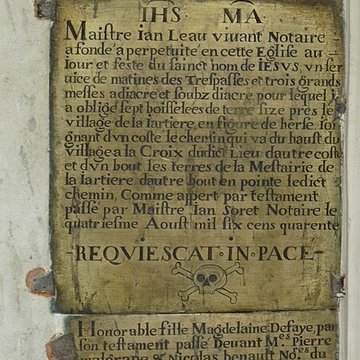 IHS MA
Maistre Ian Leau viuant Notaire
a fonde a perpetuite en cette Eglise au
Iour et feste du sainct nom de IESVS, vn ser
uice de matines des Trespasses et trois grands
messes a diacre et soubz diacre pour lequel i
a oblige sept boisselees de terre size pres le
village de la Iartiere, en figure de herse Ioi
gnant dvn coste le chemin qui va du hault du
village a la Croix dudict Lieu dautre coste
et dvn bout les terres de la Mestairie de
la Iartiere dautre bout en pointe ledict
chemin, Comme appert par testament
passe par Maistre Ian Soret Notaire le
quatriesme Aoust mil six cens quarente
-REQVIESCAT·IN·PACE-
Honorable fille Magdelaine Defaye, par
son testament passe Deuant Mes Pierre
Nicolas benault Nores du